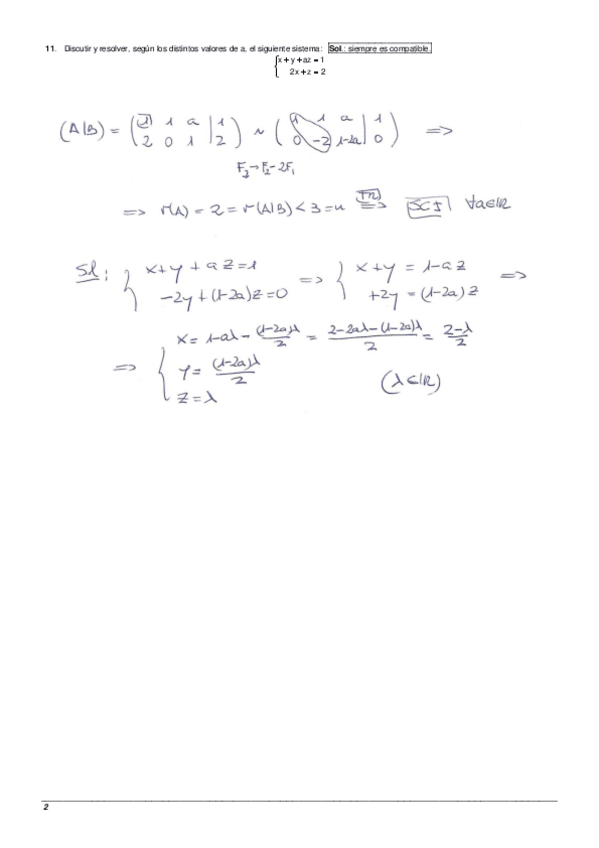 11. Discutir y resolver, según los distintos valores de a, el siguiente sistema: Sol.: siempre es compatible.
{ x + y + az = 1
2x + z = 2
(A|B) = ( 1 1 a | 1 ) ~ ( 1 1 a | 1 ) =>
2 0 1 | 2 0 -2 1-2a | 0
F₂→F₂-2F₁
=> r(A) = 2 = r(A|B) < 3 = n => SCI ∀a∈ℝ
Sol: { x+y+az=1 => { x+y = 1-az =>
-2y+(1-2a)z=0 +2y = (1-2a)z
x = 1-aλ - (1-2a)λ/2 = 2-2aλ-(1-2a)λ/2 = 2-λ/2
=> { y = (1-2a)λ/2
z = λ (λ∈ℝ)
2